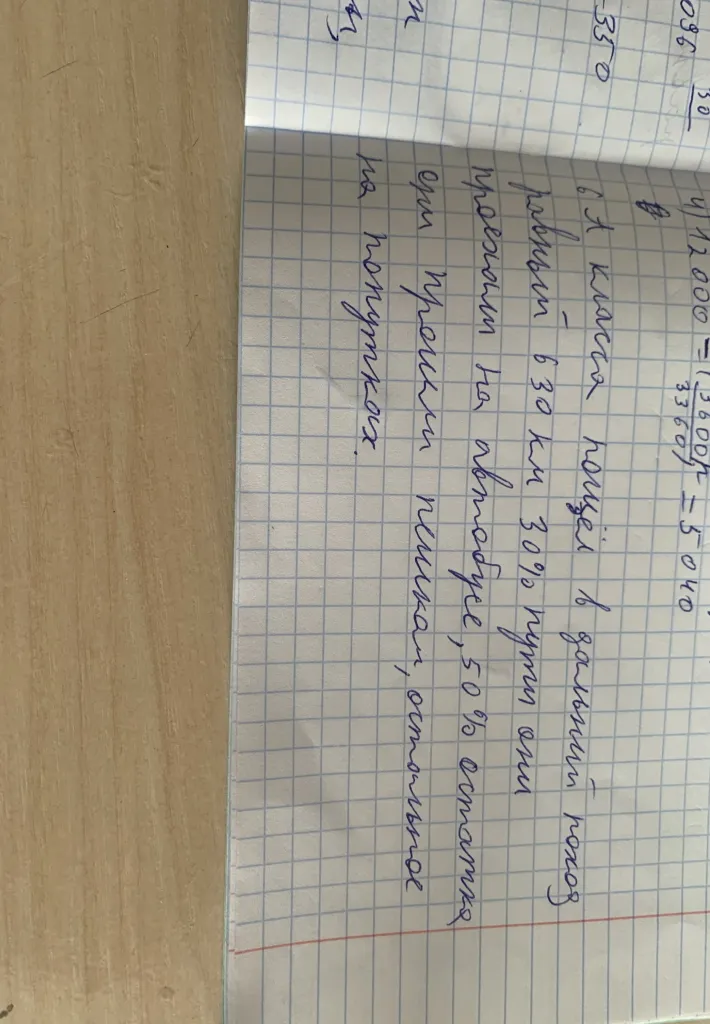 096 30
-350
и
и,
4) 12 000 - (3600 + 3360) = 5 040
6 А класса пошёл в дальний поход
равный 630 км 30% пути они
проехали на автобусе, 50% остатка
они прошли пешком, остальное
на попутках.